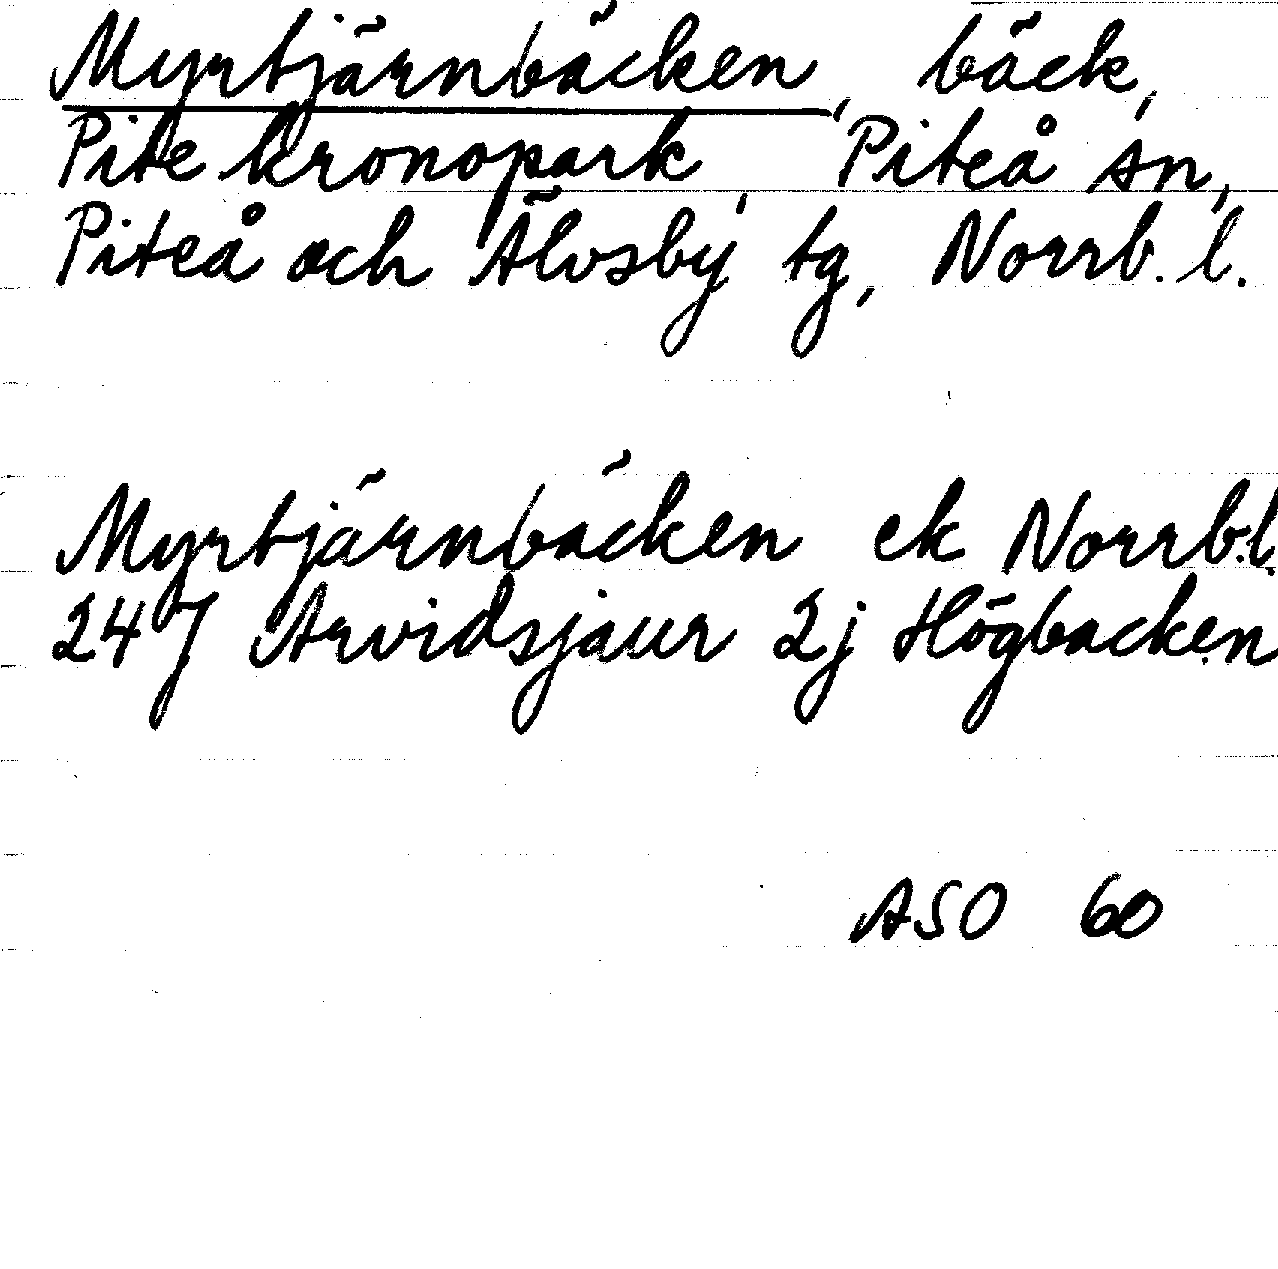 Myrtjärnbäcken, bäck,
Pite kronopark, Piteå sn,
Piteå och Älvsby tg, Norrb. l.
Myrtjärnbäcken ek Norrb.l.
24J Arvidsjaur 2j Högbacken
ASO 60